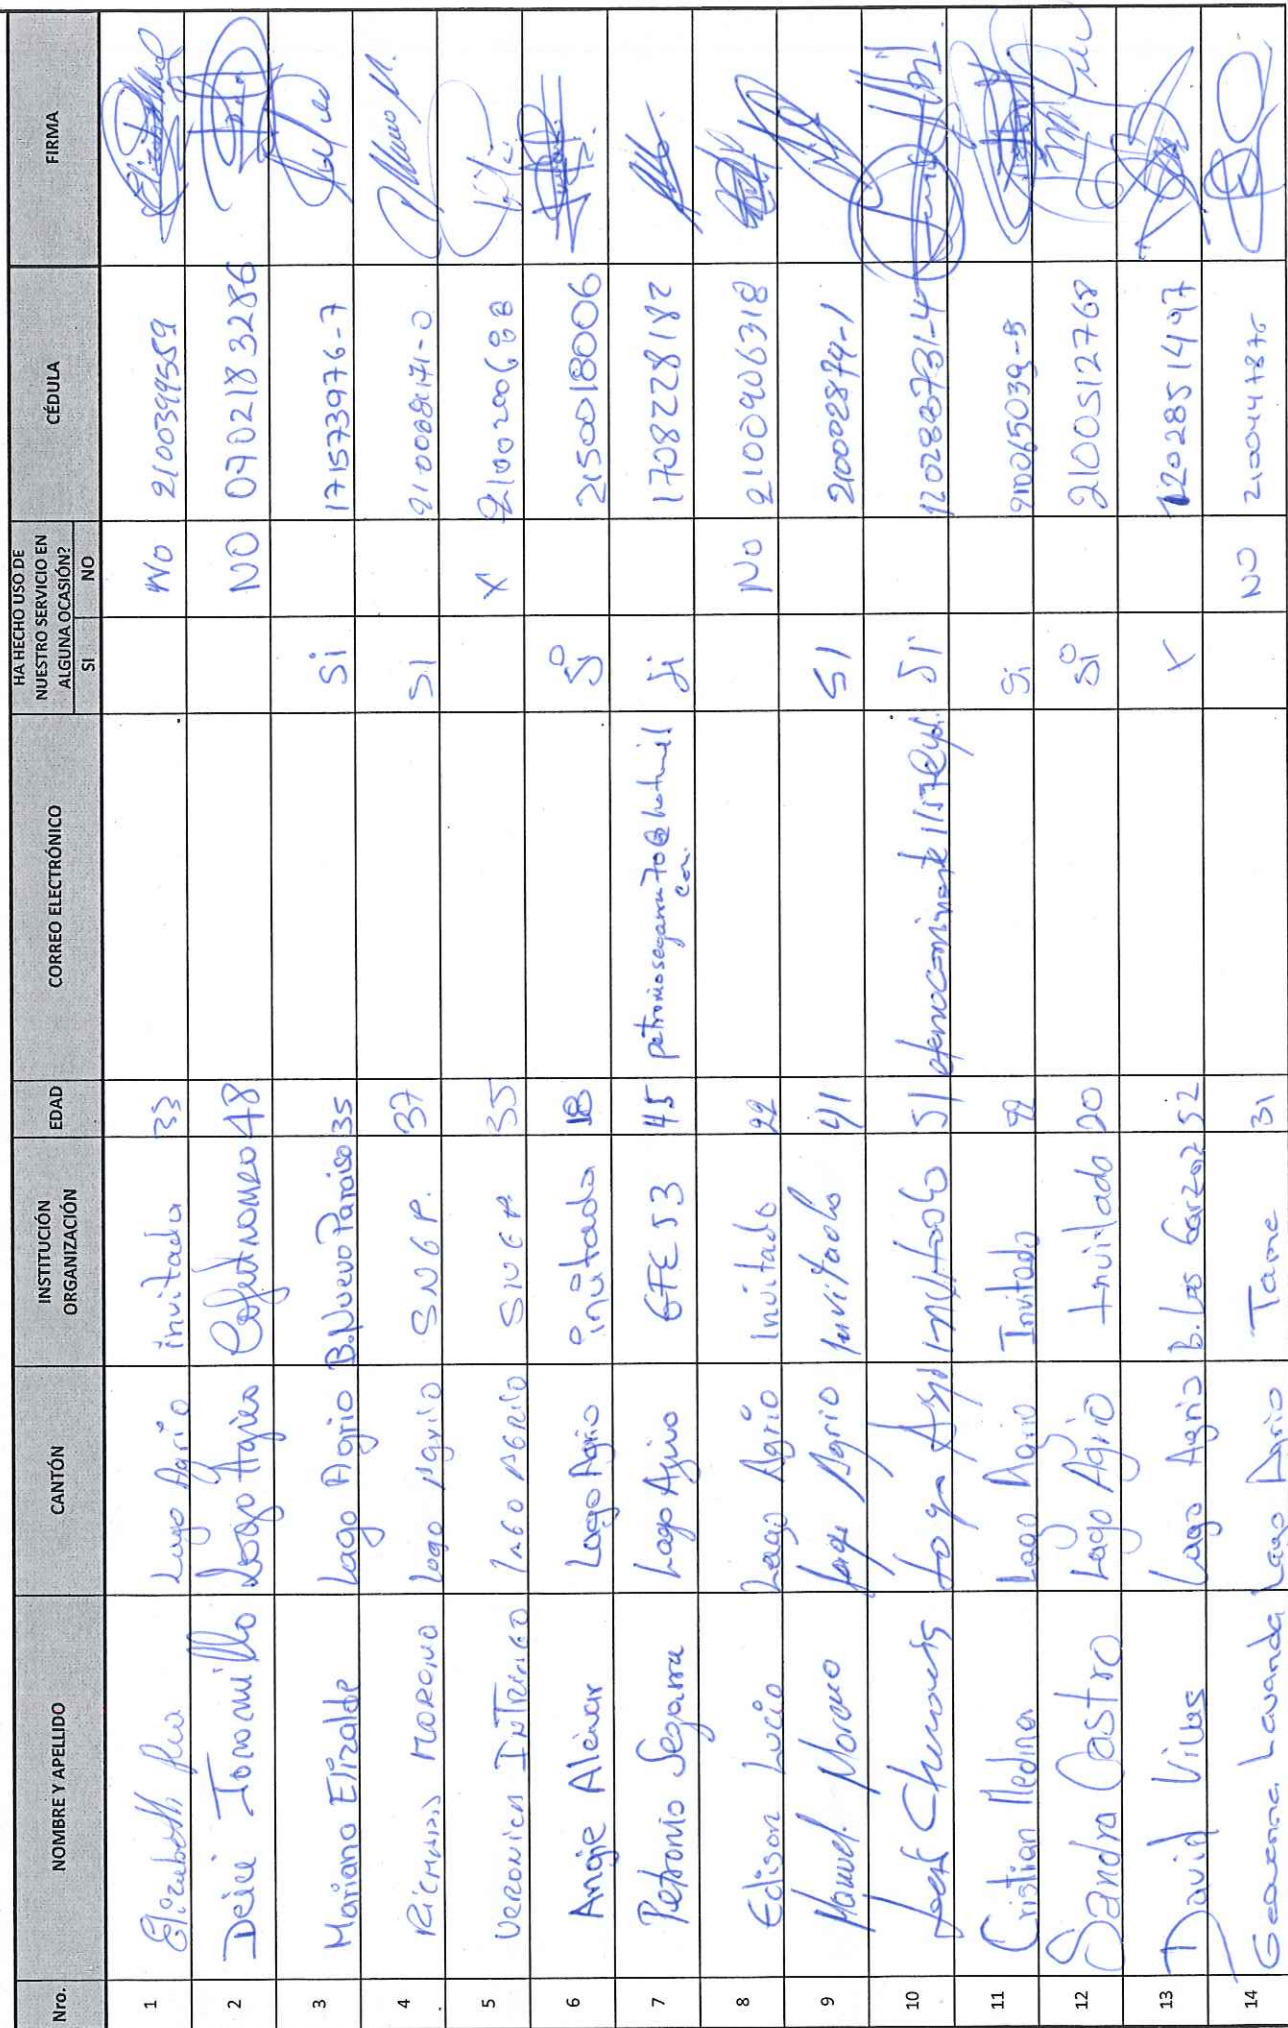 Nro. NOMBRE Y APELLIDO CANTÓN INSTITUCIÓN ORGANIZACIÓN EDAD CORREO ELECTRÓNICO HA HECHO USO DE NUESTRO SERVICIO EN ALGUNA OCASIÓN? SI NO CÉDULA FIRMA
1 Elizabeth Lago Agrio invitada 33 No 2100399559
2 Deici Jaramillo Lago Agrio 48 NO 0702183286
3 Mariano Elizalde Lago Agrio B. Nuevo Paraiso 35 Si 171573976-7
4 Richard Moreno Lago Agrio SNGP. 37 SI 210008171-0
5 Veronica Intriago Lago Agrio SNGP 35 X
6 Angie Alcivar Lago Agrio invitada 18 Si 2150018006
7 Petronio Segarra Lago Agrio GTE 53 45 petroniosegarra70@hotmail com. si 1708228182
8 Edison Lucio Lago Agrio Invitado 22 No 2100906318
9 Manuel Moreno Lago Agrio Invitado 41 SI 210002874-1
10 Lago Agrio Invitado 51 SI 120288731-4
11 Cristian Medina Lago Agrio Invitado 22 Si 210065039-5
12 Sandra Castro Lago Agrio Invitado 20 Si 2100512768
13 David Villas Lago Agrio B. Las Garzas 52 X 1202851497
14 Lavanda Lago Agrio Tame 31 NO 2100447876